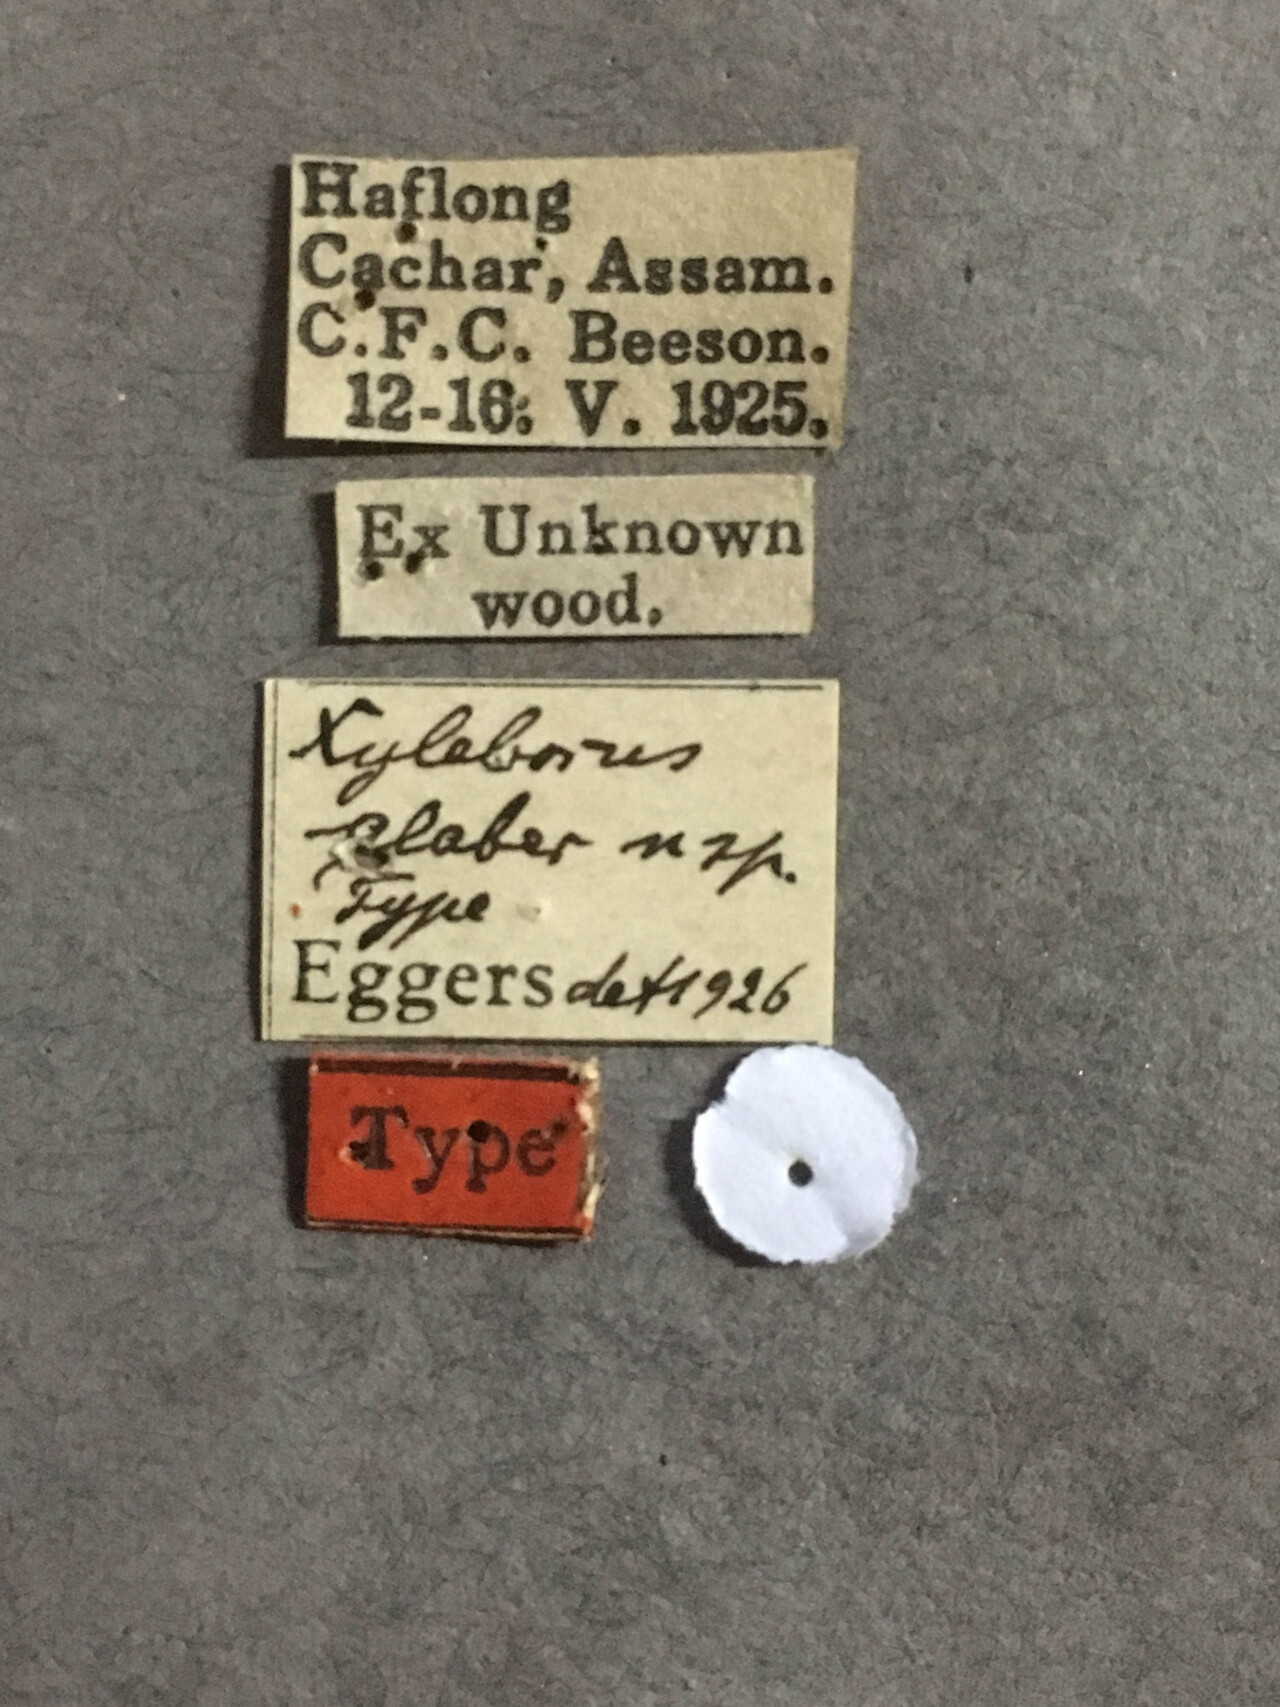 Haflong
Cachar, Assam.
C.F.C. Beeson.
12-16. V. 1925.
Ex Unknown
wood.
Xyleborus
glaber n sp.
Type
Eggers det 1926
Type